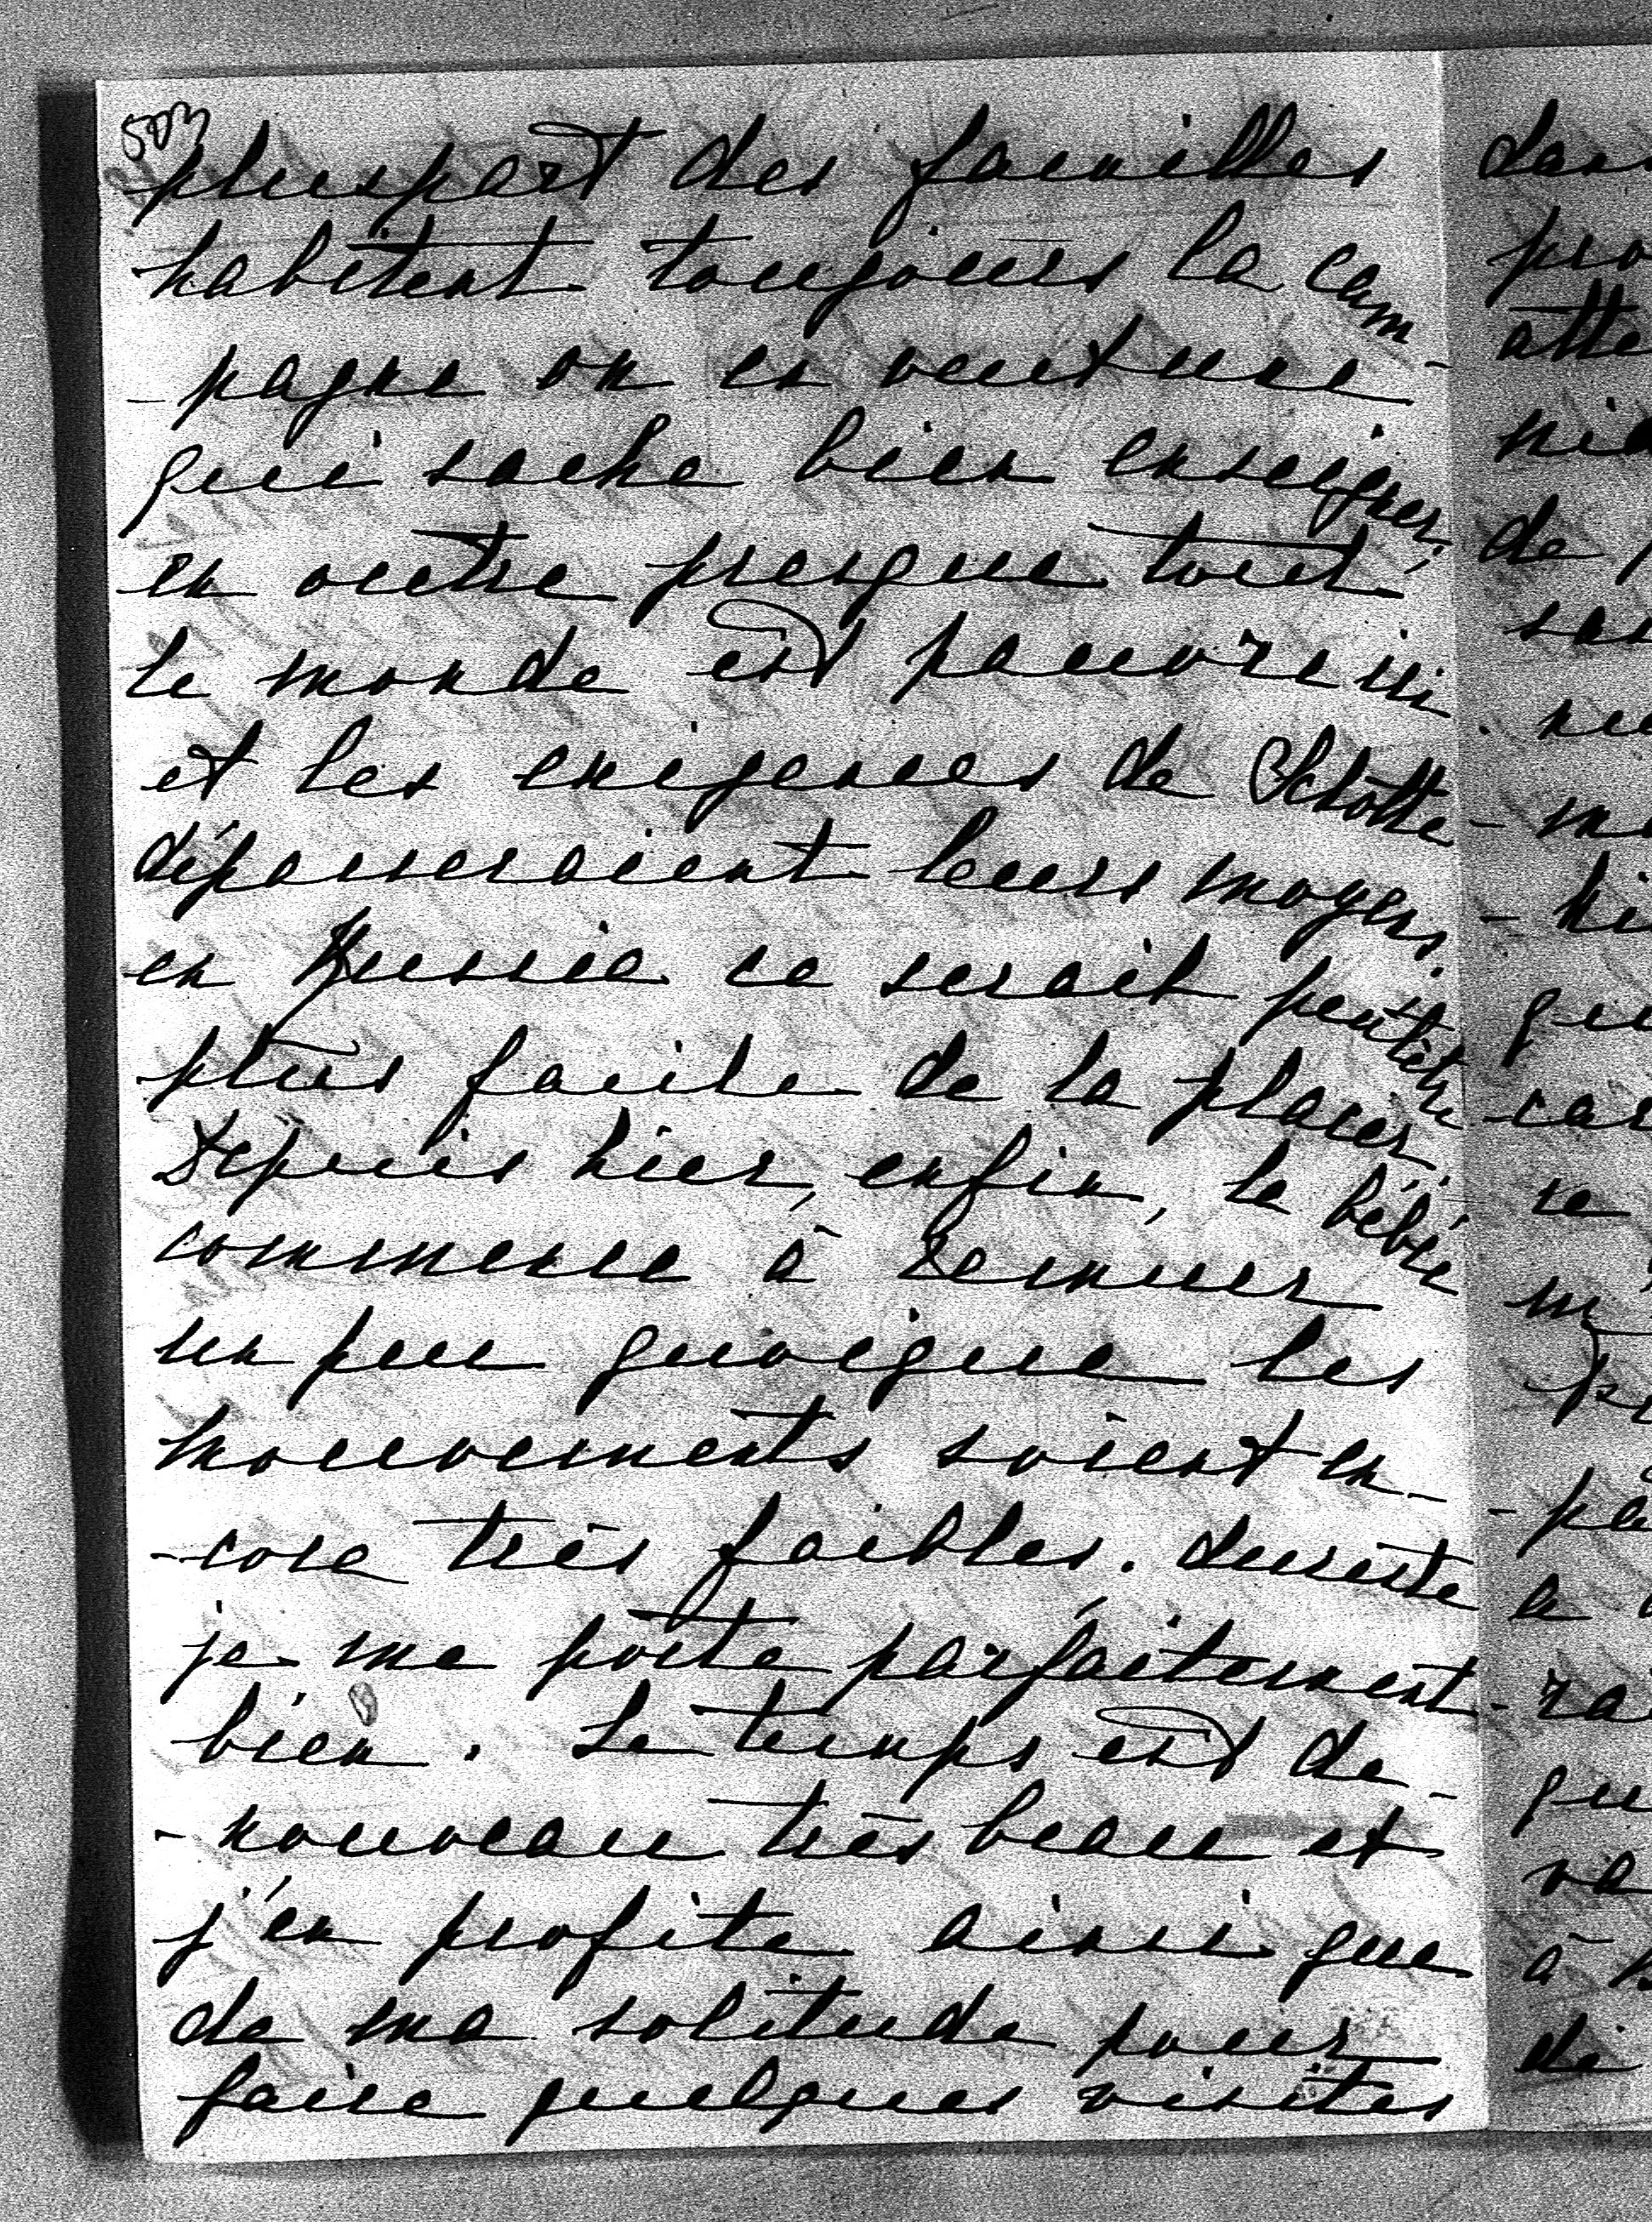 503
pluspart des familles
habitent toujours la cam-
-pagne on en veut une
qui sache bien enseigner,
en outre presque tout
le monde est pauvre ici
et les exigences de Schotte
dépasseraient leurs moyens.
en Russie ce serait peutêtre
plus facile de la placer.
Depuis hier, enfin, le bébé
commence à remuer
un peu quoique les
mouvements soient en-
-core très faibles. dureste
je me porte parfaitement
bien. Le temps est de-
-nouveau très beau et
j'en profite ainsi que
de ma solitude pour
faire quelques visites